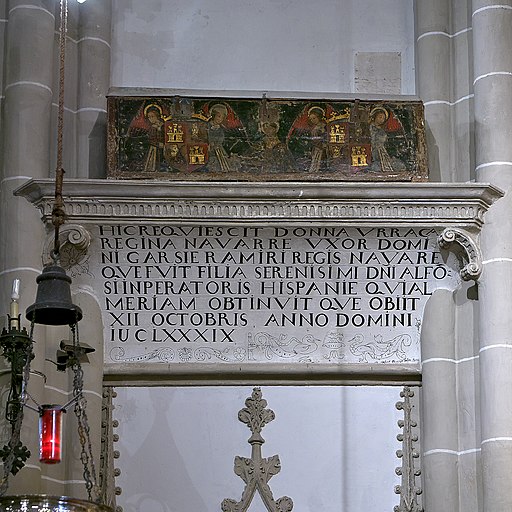 HIC REQVIESCIT DONNA VRRACA
REGINA NAVARRE VXOR DOMI
NI GARSIE RAMIRI REGIS NAVARE
QVE FVIT FILIA SERENISIMI DNI ALFO
SI INPERATORIS HISPANIE QVI AL
MERIAM OBTINVIT QVE OBIIT
XII OCTOBRIS ANNO DOMINI
IU CLXXXIX